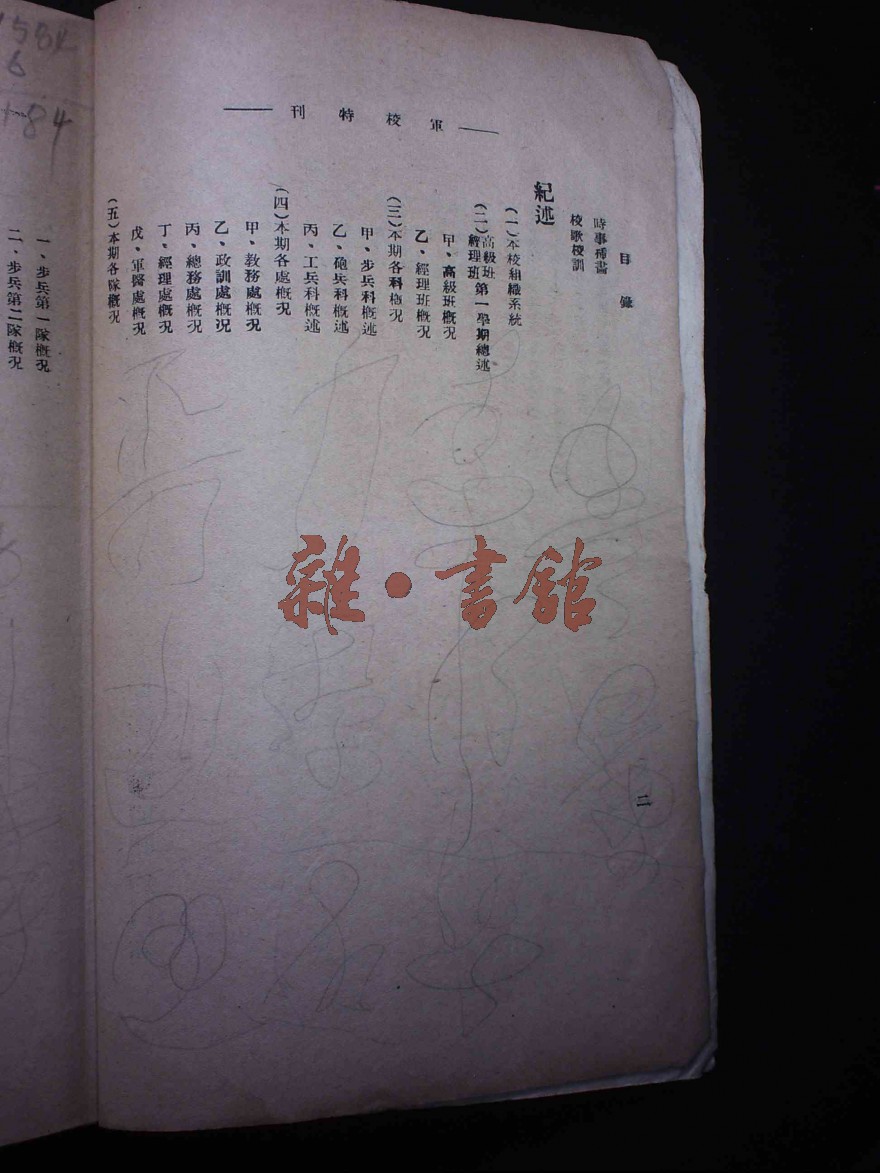 軍校特刊
目錄
時事
校歌校訓
紀述
(一)本校組織系統
(二)高級班經理班第一學期總述
甲、高級班概况
乙、經理班概况
(三)本期各科概况
甲、步兵科概述
乙、砲兵科概述
丙、工兵科概述
(四)本期各處概况
甲、教務處概况
乙、政訓處概况
丙、總務處概况
丁、經理處概况
戊、軍醫處概况
(五)本期各隊概况
二
一、步兵第一隊概况
二、步兵第二隊概况
84
雜·書館